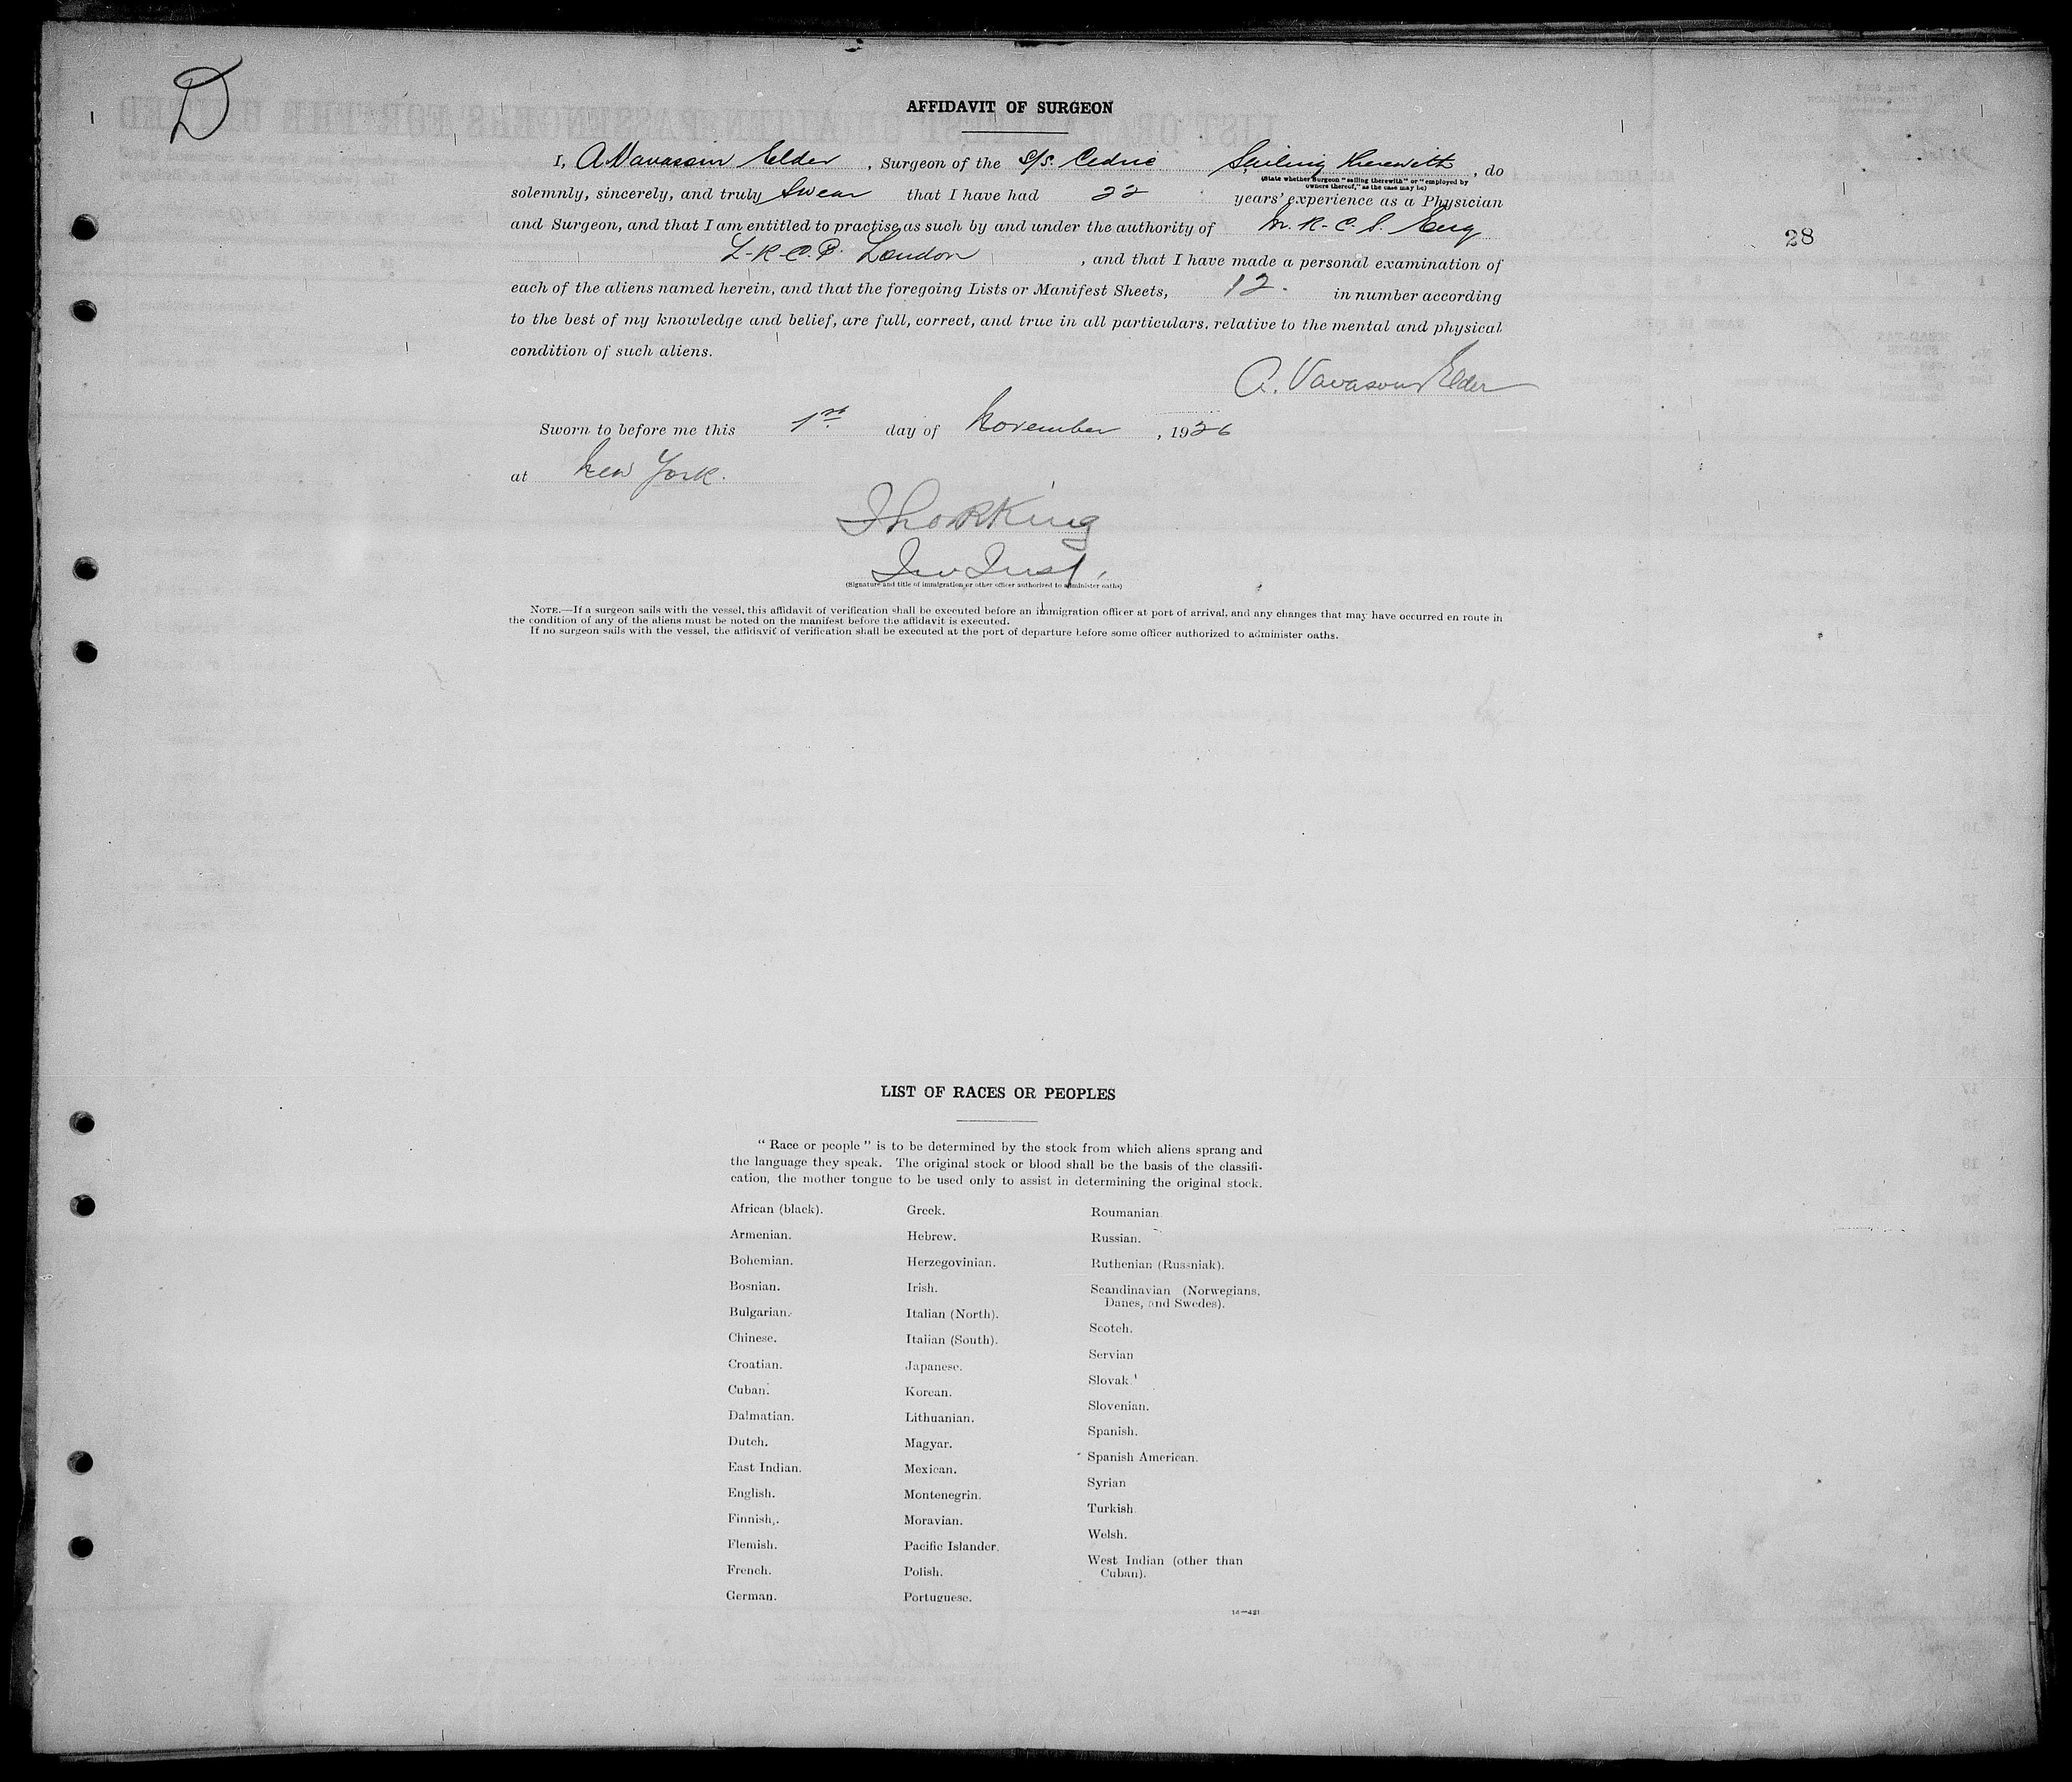 D
AFFIDAVIT OF SURGEON
I, A Vavasour Elder, Surgeon of the S/S. Cedric Sailing therewith, do
(State whether Surgeon "sailing therewith" or "employed by
owners thereof," as the case may be)
solemnly, sincerely, and truly Swear that I have had 22 years' experience as a Physician
and Surgeon, and that I am entitled to practise as such by and under the authority of M.R.C.S. Eng
28
L.R.C.P. London, and that I have made a personal examination of
each of the aliens named herein, and that the foregoing Lists or Manifest Sheets, 12. in number according
to the best of my knowledge and belief, are full, correct, and true in all particulars, relative to the mental and physical
condition of such aliens.
A. Vavasour Elder
Sworn to before me this 1st day of November, 1926
at New York.
King
(Signature and title of immigration or other officer authorized to administer oaths)
NOTE.—If a surgeon sails with the vessel, this affidavit of verification shall be executed before an immigration officer at port of arrival, and any changes that may have occurred en route in
the condition of any of the aliens must be noted on the manifest before the affidavit is executed.
If no surgeon sails with the vessel, the affidavit of verification shall be executed at the port of departure before some officer authorized to administer oaths.
LIST OF RACES OR PEOPLES
"Race or people" is to be determined by the stock from which aliens sprang and
the language they speak. The original stock or blood shall be the basis of the classifi-
cation, the mother tongue to be used only to assist in determining the original stock.
African (black).
Armenian.
Bohemian.
Bosnian.
Bulgarian.
Chinese.
Croatian.
Cuban.
Dalmatian.
Dutch.
East Indian.
English.
Finnish.
Flemish.
French.
German.
Greek.
Hebrew.
Herzegovinian.
Irish.
Italian (North).
Italian (South).
Japanese.
Korean.
Lithuanian.
Magyar.
Mexican.
Montenegrin.
Moravian.
Pacific Islander.
Polish.
Portuguese.
Roumanian
Russian.
Ruthenian (Russniak).
Scandinavian (Norwegians,
Danes, and Swedes).
Scotch.
Servian
Slovak.
Slovenian.
Spanish.
Spanish American.
Syrian
Turkish
Welsh.
West Indian (other than
Cuban).
14—421